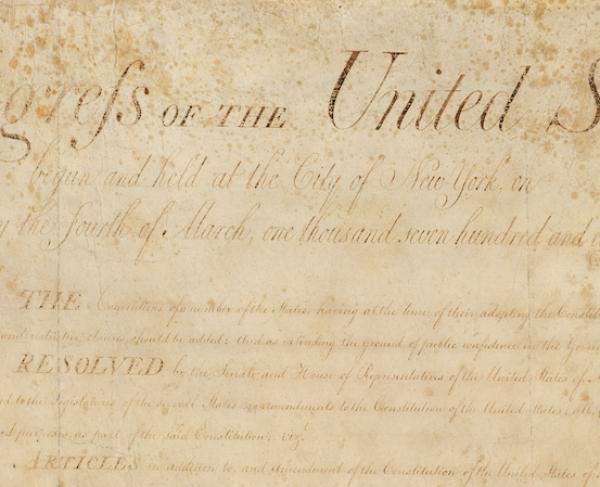 greſs OF THE United S
begun and held at the City of New-York, on
the fourth of March, one thousand seven hundred and
THE Conventions of a number of the States, having at the time of their adopting the Constit
and restrictive clauses should be added: And as extending the ground of public confidence in the Govern
RESOLVED by the Senate and House of Representatives of the United States of A
to the Legislatures of the several States as amendments to the Constitution of the United States, all
purposes, as part of the said Constitution; viz.
ARTICLES in addition to, and amendment of the Constitution of the United States of